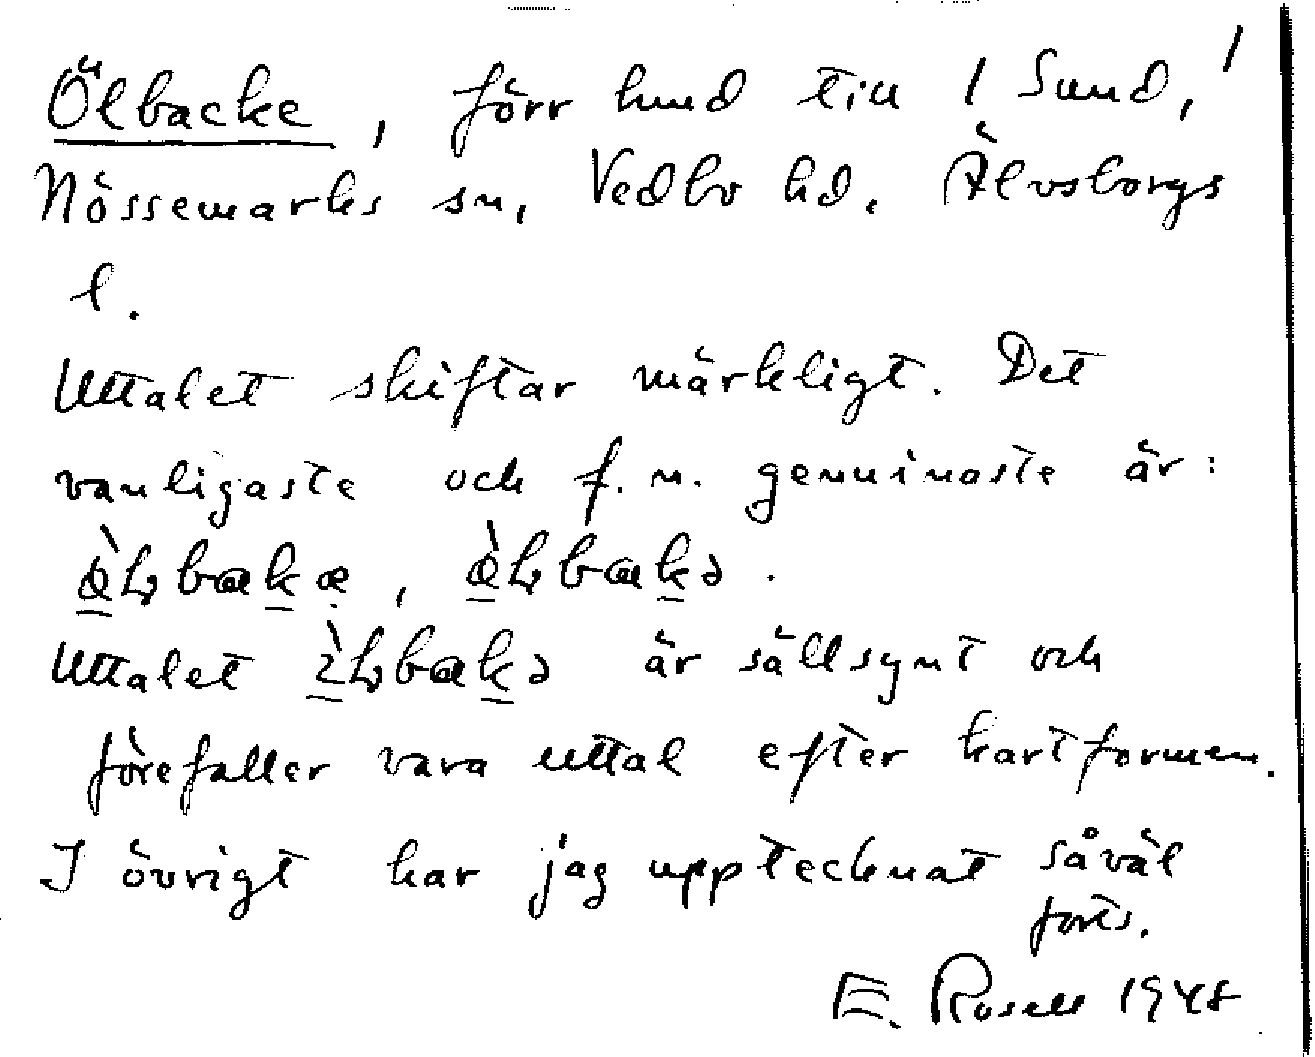 Ölbacke, förr lund till 1 Sund,
Nössemarks sn, Vedbo hd. Älvsborgs
l.
Uttalet skiftar märkligt. Det
vanligaste och f. n. genuinaste är:
Uttalet är sällsynt och
förefaller vara uttal efter kartformen.
I övrigt har jag upptecknat såväl
forts.
E. Rosell 1948